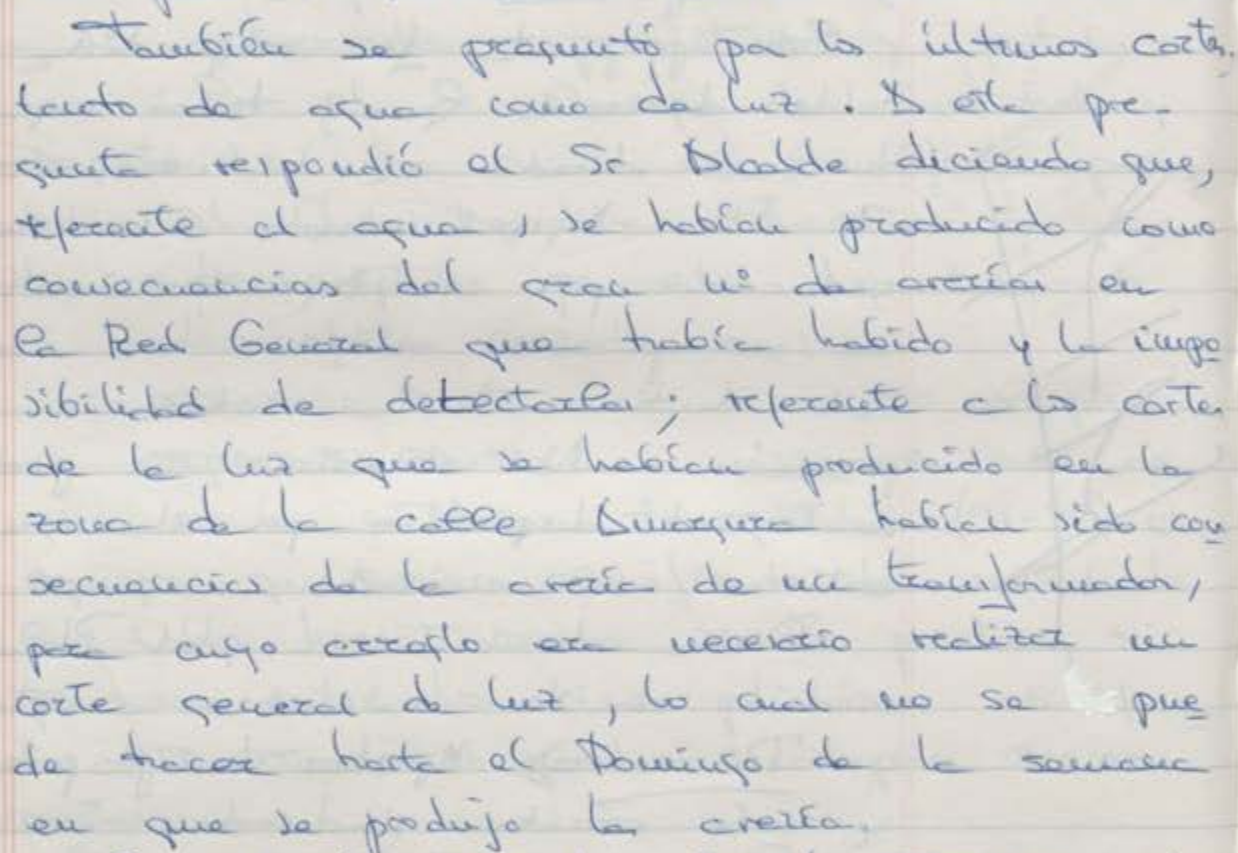 También se preguntó por los últimos cortes,
tanto de agua como de luz. A esta pre-
gunta respondió el Sr Alcalde diciendo que,
referente al agua, se habían producido como
consecuencias del gran nº de averías en
la Red General que había habido y la impo
sibilidad de detectarlas; referente a los cortes
de la luz que se habían producido en la
zona de la calle Amargura habían sido con
secuencias de la avería de un transformador,
para cuyo arreglo era necesario realizar un
corte general de luz, lo cual no se pue
de hacer hasta el Domingo de la semana
en que se produjo la avería.